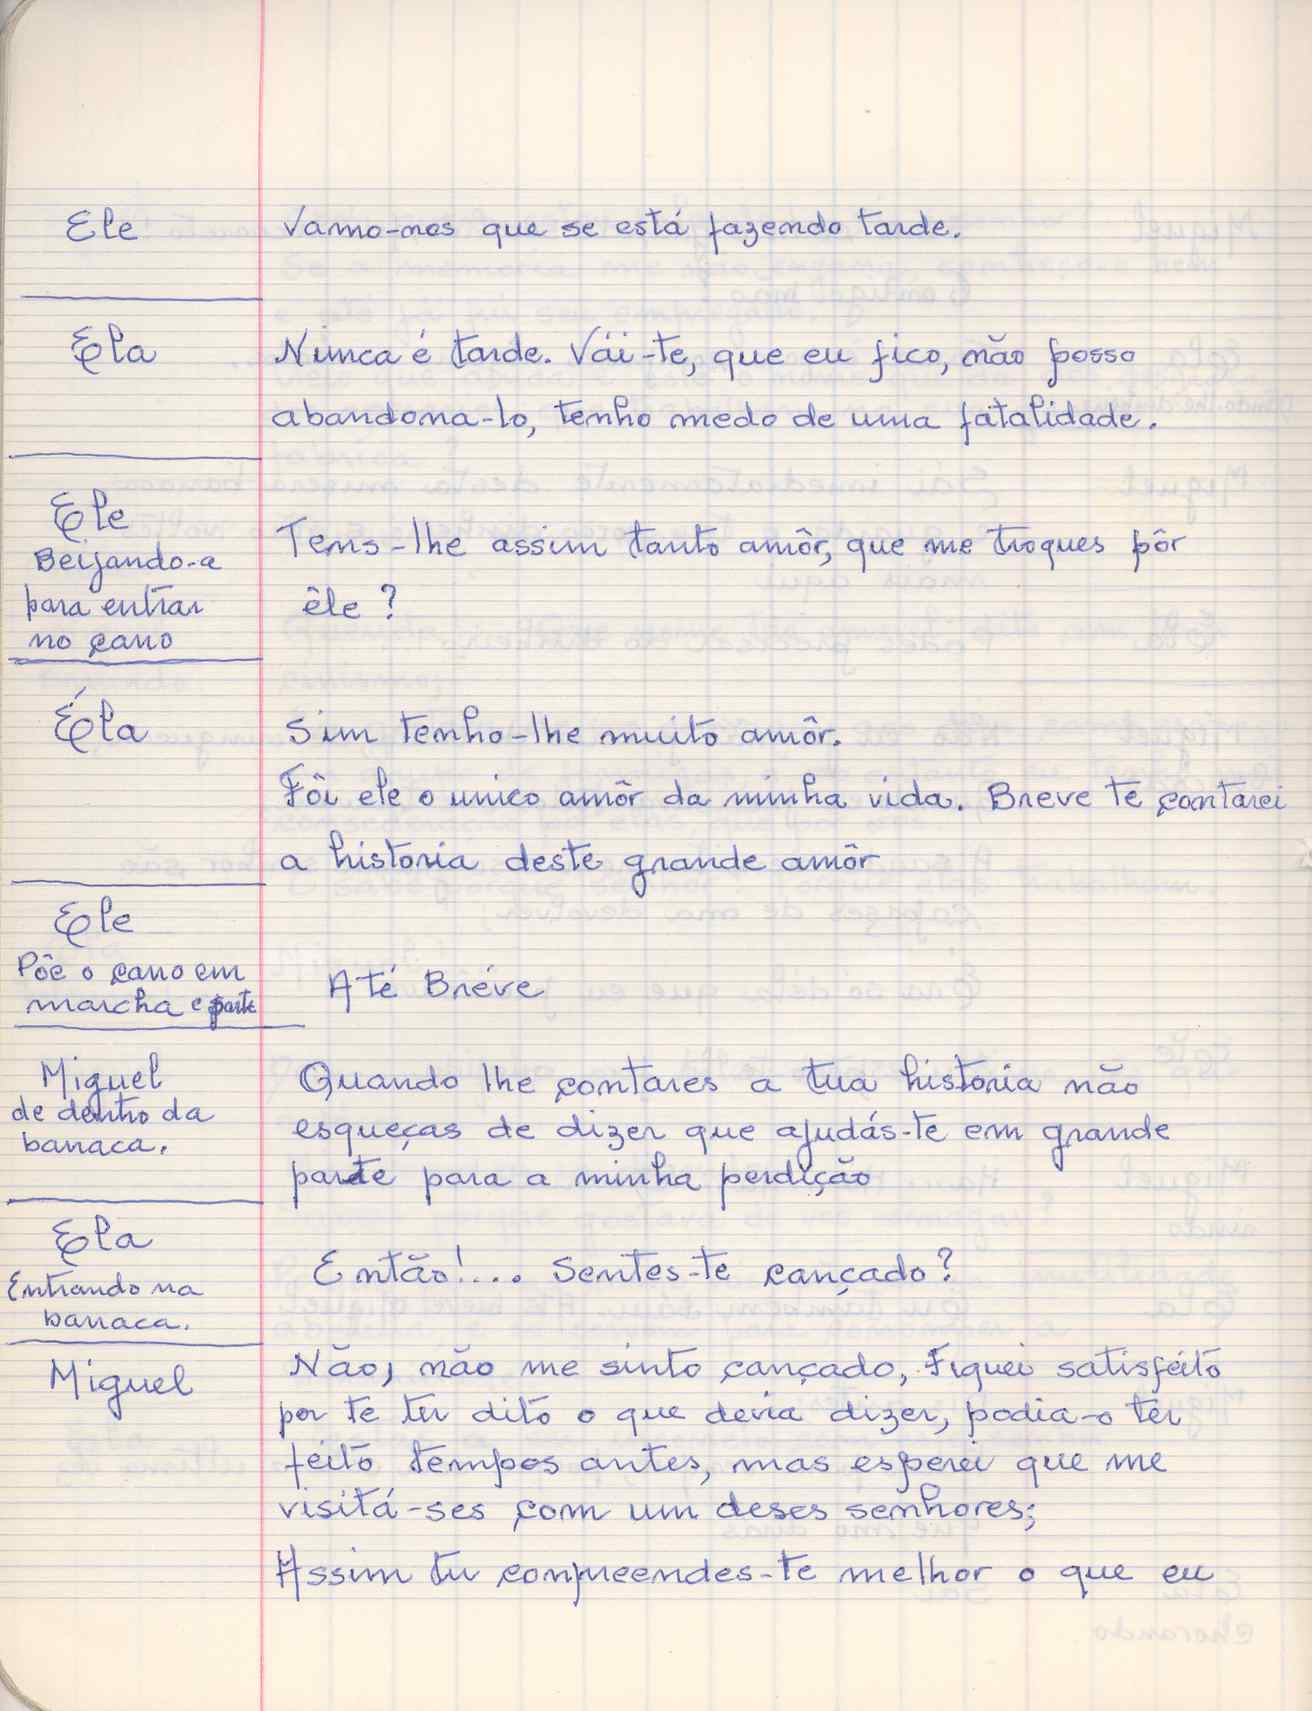 Ele
Vamo-nos que se está fazendo tarde.
Ela
Nunca é tarde. Vái-te, que eu fico, não posso
abandona-lo, tenho medo de uma fatalidade.
Ele
Beijando-a
para entrar
no carro
Tens-lhe assim tanto amôr, que me troques pôr
êle ?
Éla
Sim tenho-lhe muito amôr.
Fôi ele o unico amôr da minha vida. Breve te contarei
a historia deste grande amôr
Ele
Põe o carro em
marcha e parte
Até Bréve
Miguel
de dentro da
barraca.
Quando lhe contares a tua historia não
esqueças de dizer que ajudás-te em grande
parte para a minha perdição
Ela
Entrando na
barraca.
Então!... Sentes-te cançado?
Miguel
Não, não me sinto cançado, Fiquei satisfeito
por te ter dito o que devia dizer, podia-o ter
feito tempos antes, mas esperei que me
visitá-ses com um deses senhores;
Assim tu compreendes-te melhor o que eu